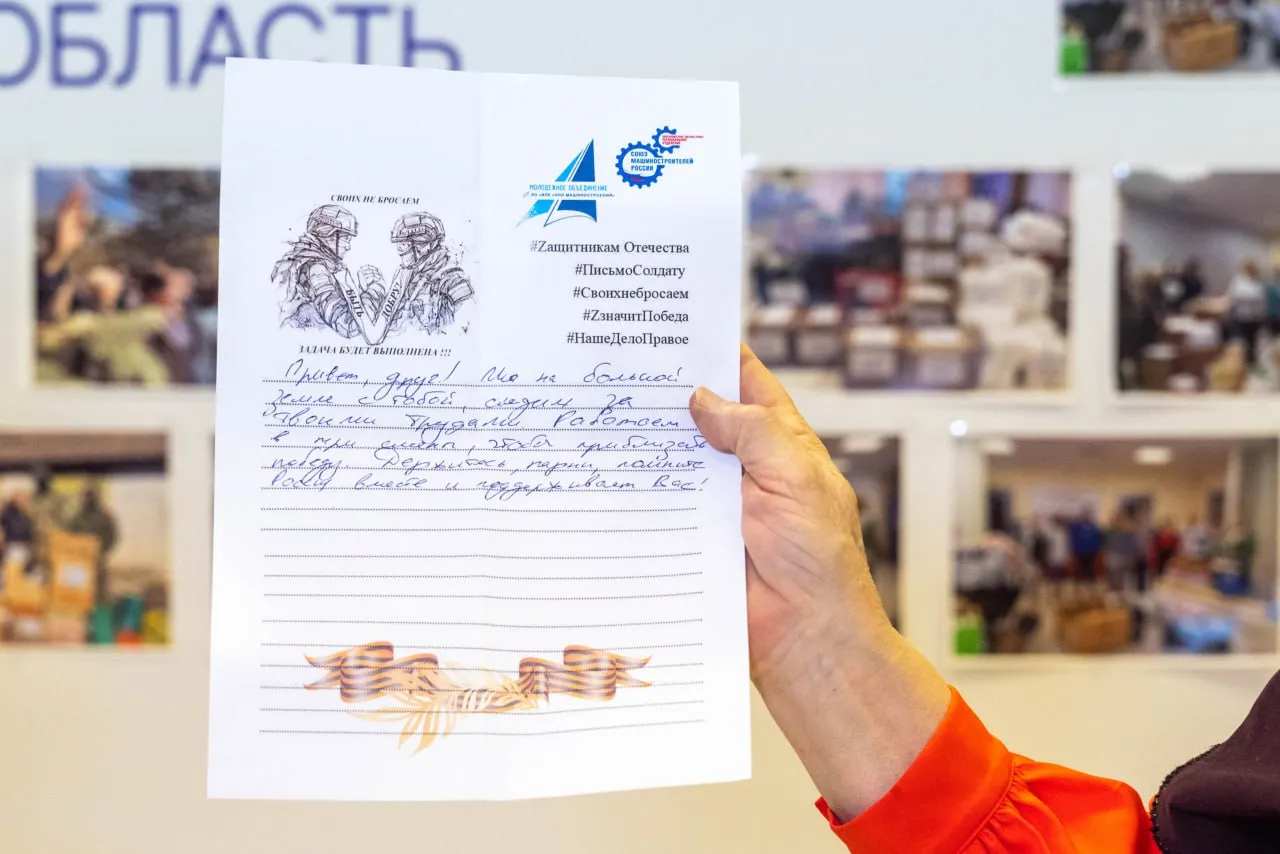 ОБЛАСТЬ
СВОИХ НЕ БРОСАЕМ
БЫТЬ ДОБРУ
ЗАДАЧА БУДЕТ ВЫПОЛНЕНА !!!
МОЛОДЕЖНОЕ ОБЪЕДИНЕНИЕ
АО «ВПК «НПО МАШИНОСТРОЕНИЯ»
СОЮЗ
МАШИНОСТРОИТЕЛЕЙ
РОССИИ
#Zащитникам Отечества
#ПисьмоСолдату
#Своихнебросаем
#ZначитПобеда
#НашеДелоПравое
Привет, друг! Мы на большой
земле с тобой, следим за
твоими трудами. Работаем
в три смены, чтобы приблизить
победу. Держитесь, парни, помните
вместе и поддерживает Вас!